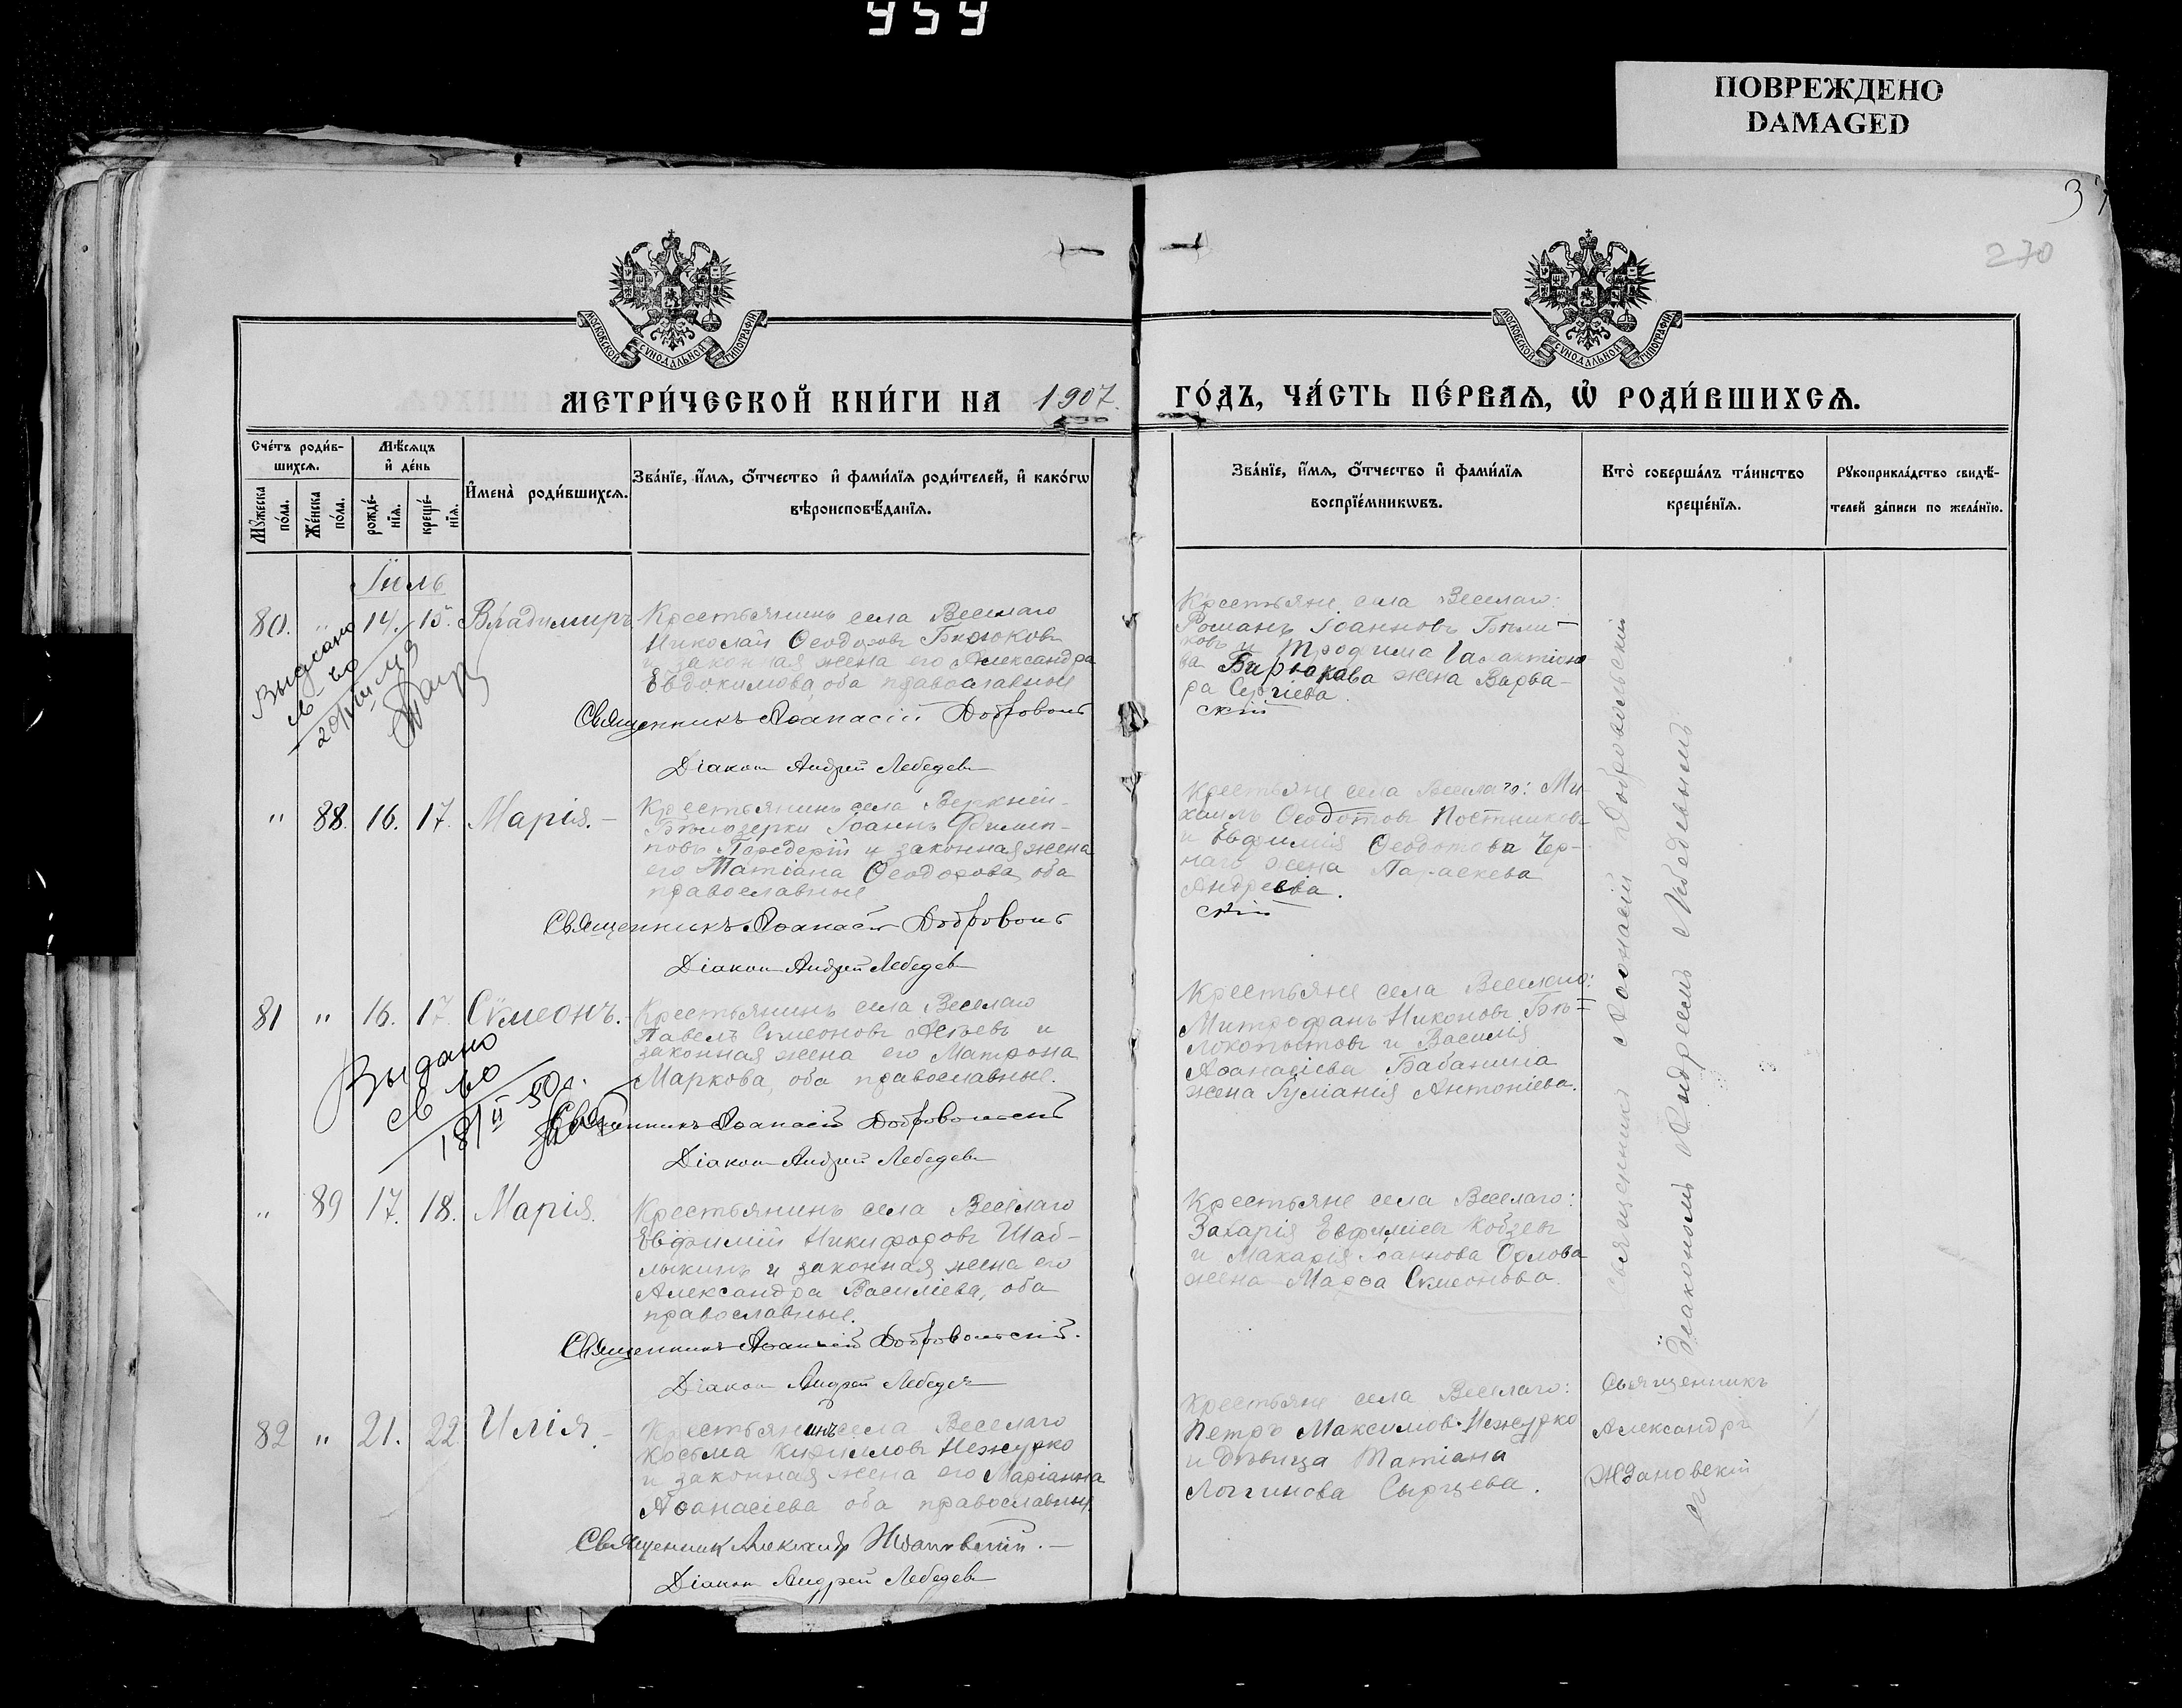 959
ПОВРЕЖДЕНО
DAMAGED
37
270
МОСКОВСКОЙ СУНОДАЛЬНОЙ ТИПОГРАФІИ
МОСКОВСКОЙ СУНОДАЛЬНОЙ ТИПОГРАФІИ
МЕТРИ́ЧЕСКОЙ КНИ́ГИ НА 1907.
ГО́ДЪ, ЧА́СТЬ ПЕ́РВАѦ, Ѽ РОДИ́ВШИХСѦ.
Сче́тъ роди́в-
шихсѧ.
Мꙋ́жеска по́ла.
Же́нска по́ла.
Мѣ́сѧцъ
и҆ де́нь
рожде́-
нїѧ.
креще́-
нїѧ.
И҆мена̀ роди́вшихсѧ.
Зва́нїе, и҆́мѧ, ѻ҆́тчество и҆ фами́лїѧ роди́телей, и҆ како́гѡ
вѣроисповѣ́данїѧ.
Зва́нїе, и҆́мѧ, ѻ҆́тчество и҆ фами́лїѧ
воспрїе́мникѡвъ.
Кто̀ соверша́лъ та́инство
креще́нїѧ.
Рꙋкоприкла́дство свидѣ́-
телей за́писи по жела́нїю.
Іюль
80. " 14. 15. Владимиръ
Крестьянинъ села Веселаго
Николай Ѳеодоровъ Бирюковъ
и законная жена его Александра
Евдокимова, оба православные
Священникъ Аѳанасій Добровольскій
Діаконъ Андрей Лебедевъ
Выдано
св-во
Крестьяне села Веселаго:
Романъ Іоанновъ Бѣли-
ковъ и Трофима Галактіоно
ва Бирюкова жена Варва-
ра Сергіева.
" 88. 16. 17. Марія.
Крестьянинъ села Верхней-
Бѣлозерки Іоаннъ Филип-
повъ Передерій и законная жена
его Татіана Ѳеодорова, оба
православные
Священникъ Аѳанасій Добровольскій
Діаконъ Андрей Лебедевъ
Крестьяне села Веселаго: Ми
хаилъ Ѳеодотовъ Постниковъ
и Евфимія Ѳеодотова Чер-
наго жена Параскева
Андреева.
81 " 16. 17. Сѵмеонъ.
Крестьянинъ села Веселаго
Павелъ Сѵмеоновъ и
законная жена его Матрона
Маркова, оба православные.
Священникъ Аѳанасій Добровольскій
Діаконъ Андрей Лебедевъ
Выдано
св-во
18/II 50 г.
Крестьяне села Веселаго:
Митрофанъ Никоновъ Бѣ-
локопытовъ и Василія
Аѳанасіева Бабанина
жена Іуліанія Антоніева.
" 89 17. 18. Марія.
Крестьянинъ села Веселаго
Евфимій Никифоровъ Шаб-
лыкинъ и законная жена его
Александра Василіева, оба
православные.
Священникъ Аѳанасій Добровольскій.
Діаконъ Андрей Лебедевъ
Крестьяне села Веселаго:
Захарія Евфиміевъ Кобзевъ
и Макарія Іоаннова Орлова
жена Марѳа Сѵмеонова.
82 " 21. 22. Илія.
Крестьянинъ села Веселаго
Косьма Кирилловъ Нежурко
и законная жена его Маріанна
Аѳанасіева оба православные
Священникъ Александръ Ждановскій.
Діаконъ Андрей Лебедевъ
Крестьяне села Веселаго:
Петръ Максимовъ Нежурко
и дѣвица Татіана
Логгинова Сырцева.
Священникъ Аѳанасій Добровольскій
съ Діакономъ Андреемъ Лебедевымъ
Священникъ
Александръ
Ждановскій